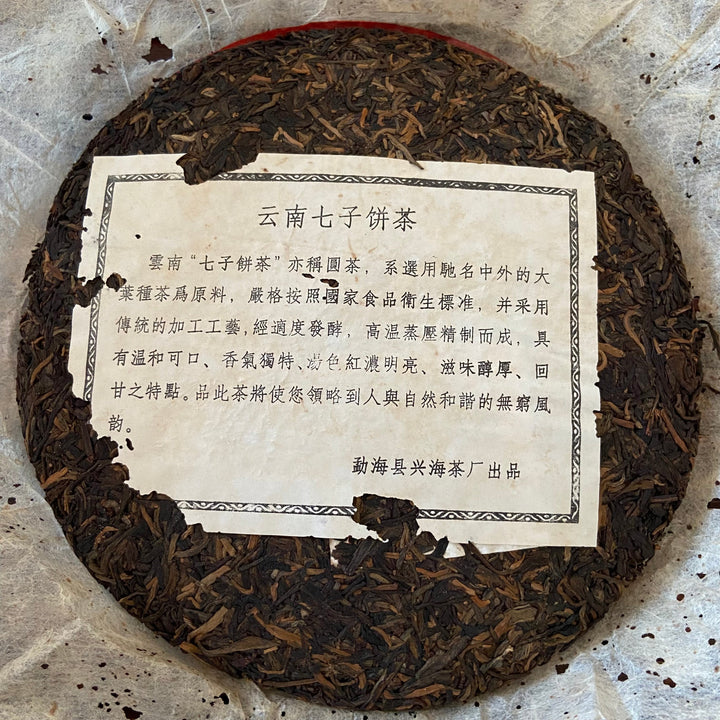 云南七子饼茶
雲南“七子餅茶”亦稱圓茶，系選用馳名中外的大
葉種茶爲原料，嚴格按照國家食品衛生標准，并采用
傳統的加工工藝，經適度發酵，高温蒸壓精制而成，具
有温和可口、香氣獨特、湯色紅濃明亮、滋味醇厚、回
甘之特點。品此茶將使您領略到人與自然和諧的無窮風
韵。
勐海县兴海茶厂出品